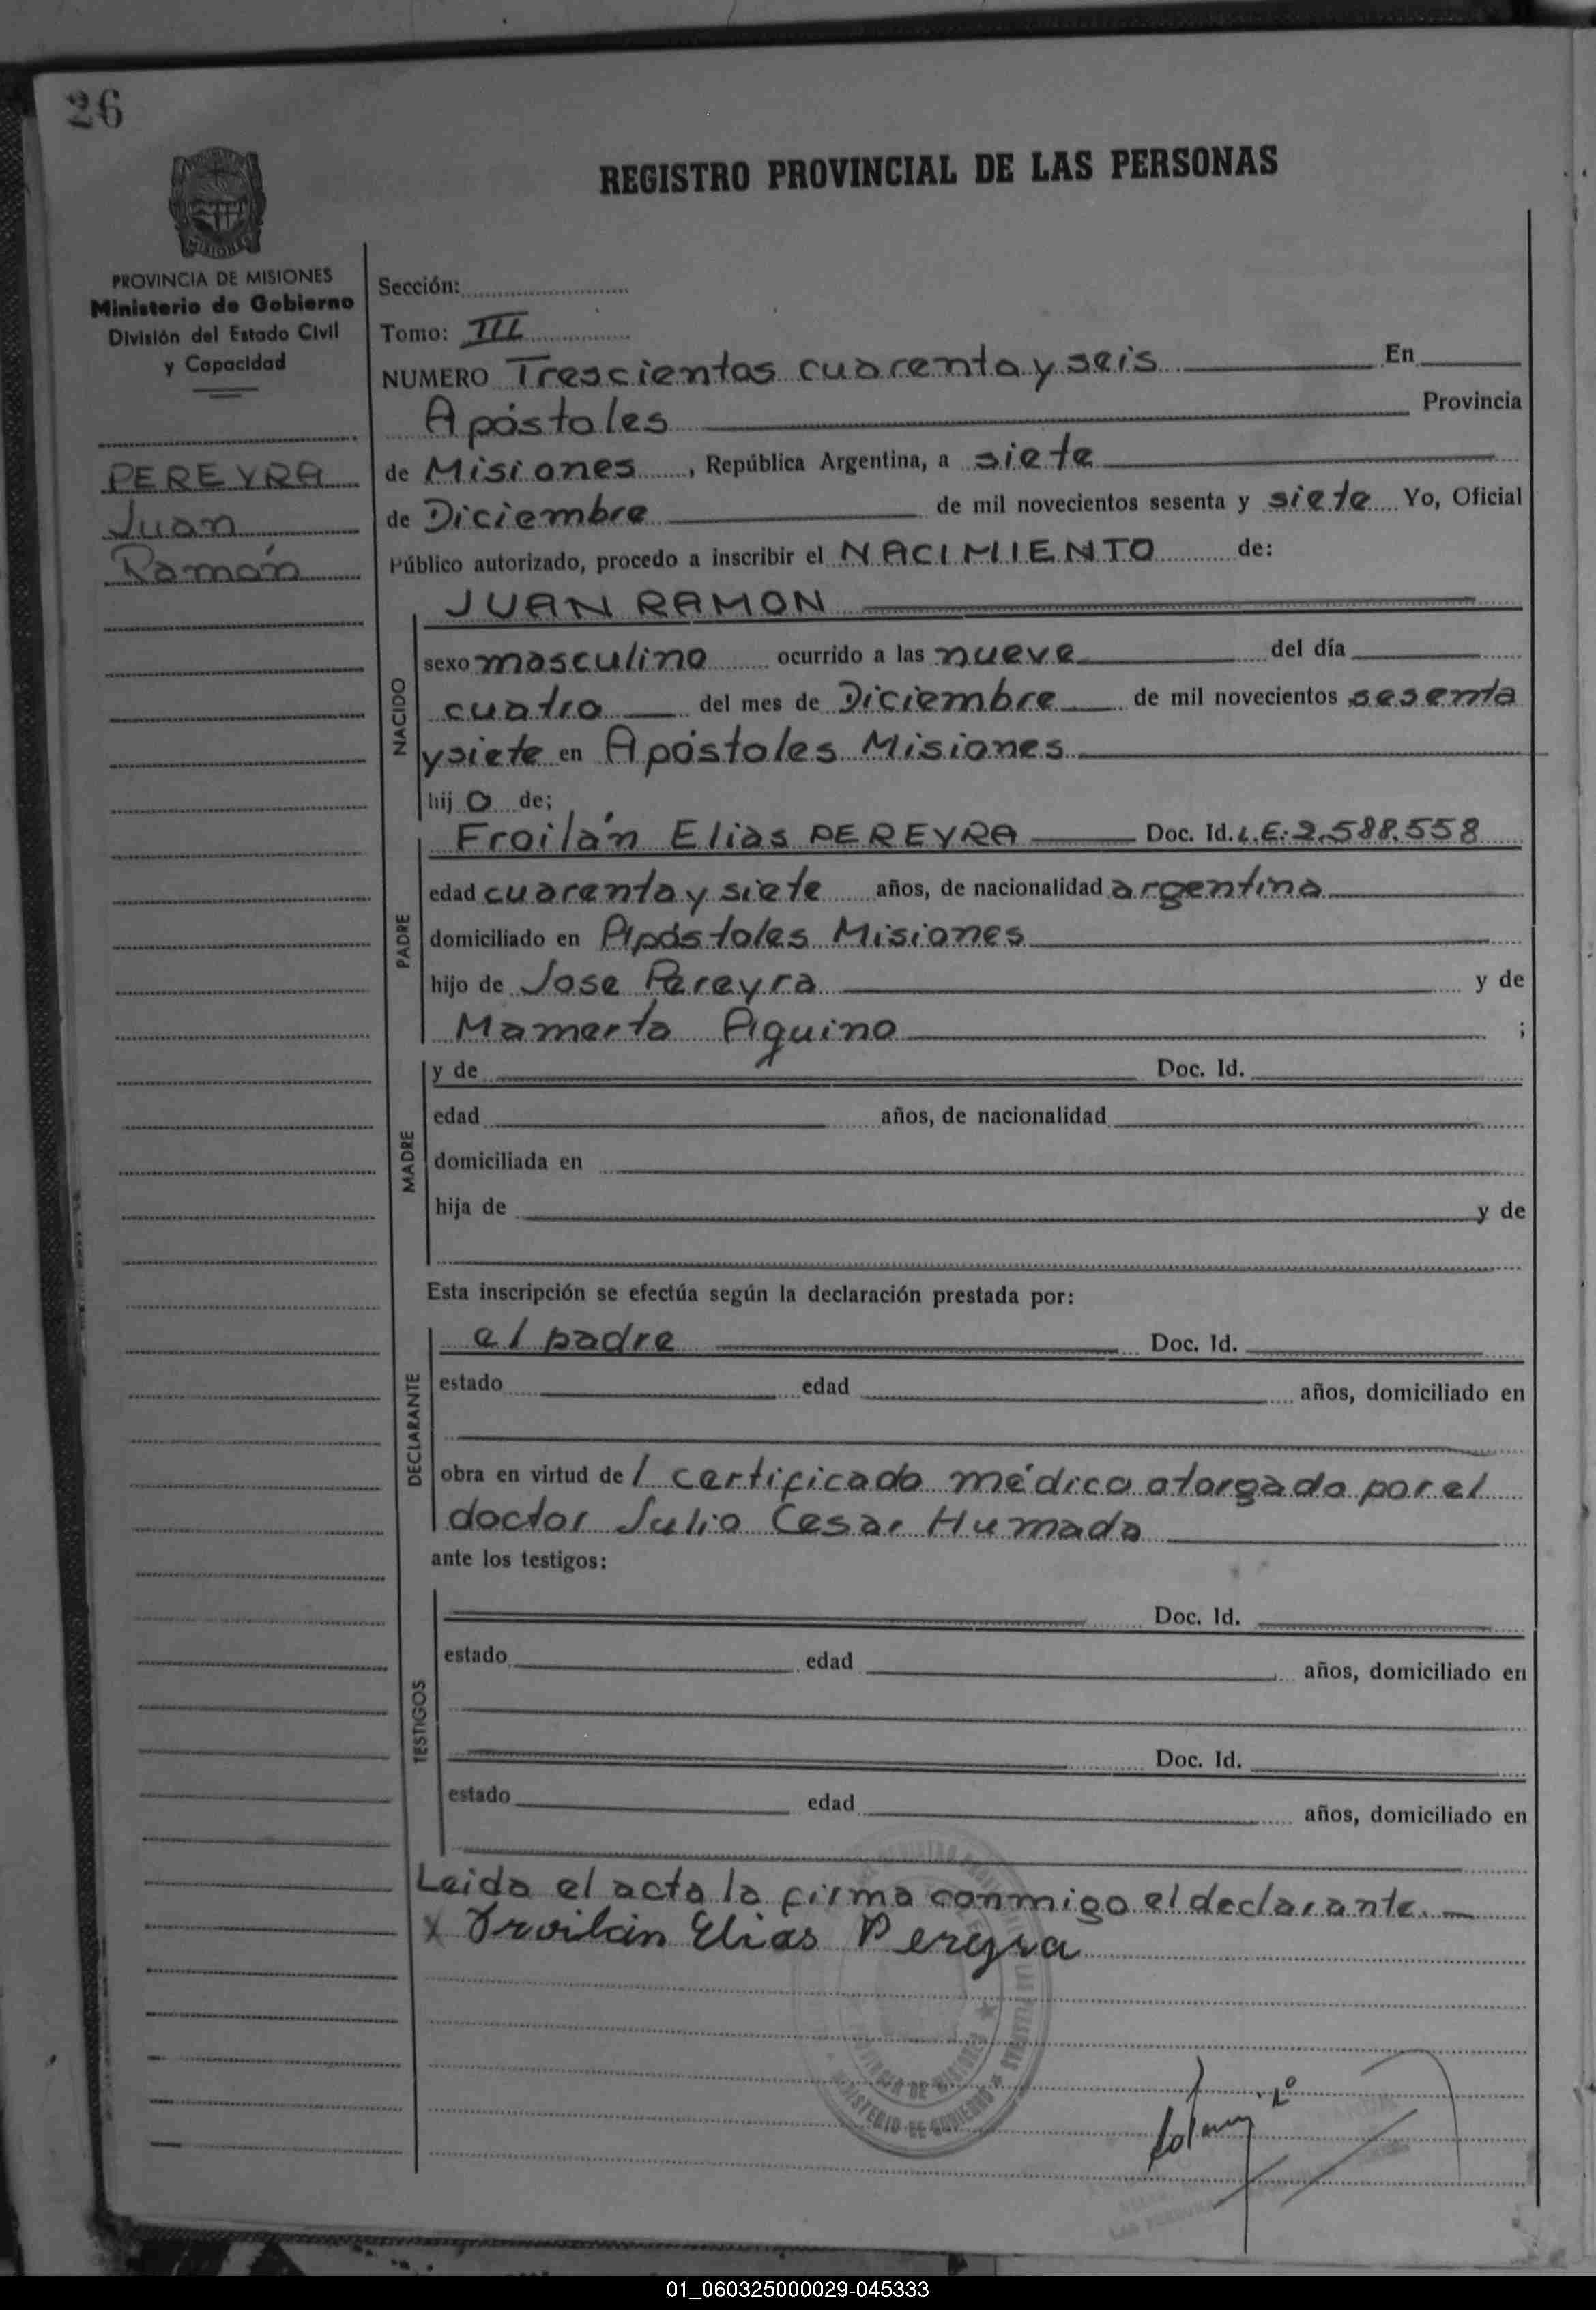 26
REGISTRO PROVINCIAL DE LAS PERSONAS
MISIONES
PROVINCIA DE MISIONES
Ministerio de Gobierno
División del Estado Civil
y Capacidad
PEREYRA
Juan
Ramón
Sección:
Tomo: III
NUMERO Trescientos cuarenta y seis En
Apóstoles Provincia
de Misiones, República Argentina, a siete
de Diciembre de mil novecientos sesenta y siete Yo, Oficial
Público autorizado, procedo a inscribir el NACIMIENTO de:
NACIDO
JUAN RAMON
sexo masculino ocurrido a las nueve del día
cuatro del mes de Diciembre de mil novecientos sesenta
y siete en Apóstoles Misiones
hij o de;
PADRE
Froilán Elias PEREYRA Doc. Id. L.E: 2.588.558
edad cuarenta y siete años, de nacionalidad argentina
domiciliado en Apóstoles Misiones
hijo de Jose Pereyra y de
Mamerta Aquino ;
MADRE
y de Doc. Id.
edad años, de nacionalidad
domiciliada en
hija de y de
Esta inscripción se efectúa según la declaración prestada por:
DECLARANTE
el padre Doc. Id.
estado edad años, domiciliado en
obra en virtud de l certificado médico otorgado por el
doctor Julio Cesar Humada
ante los testigos:
TESTIGOS
Doc. Id.
estado edad años, domiciliado en
Doc. Id.
estado edad años, domiciliado en
Leida el acta la firma conmigo el declarante.
x Froilán Elias Pereyra
PROVINCIA DE MISIONES
MINISTERIO DE GOBIERNO
01_060325000029-045333